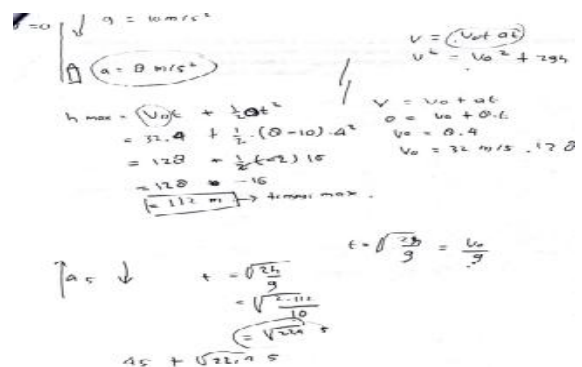 =0 ↓ g = 10 m/s²
a = 8 m/s²
V = Vo + at
v² = Vo² + 2gh
h max = Vo t + ½ at²
= 32.4 + ½ . (8-10) . 4²
= 128 + ½ (-2) 16
= 128 - 16
= 112 m →
max.
V = Vo + at
0 = Vo + 8.t
Vo = 8.4
Vo = 32 m/s . 128
t = √2h/g = Vo/g
t = √2h/g
= √2.112/10
= √22,4 s
4s + √22,4 s